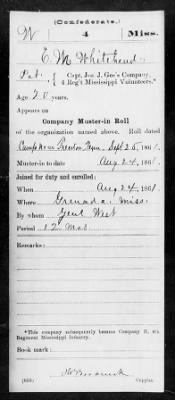 (Confederate.)
W 4 Miss.
E. M. Whitehead
Pvt., Capt. Jon J. Gee's Company,
4 Reg't Mississippi Volunteers.*
Age 20 years.
Appears on
Company Muster-in Roll
of the organization named above. Roll dated
Camp near Trenton, Tenn, Sept 25, 1861.
Muster-in to date Aug 24, 1861.
Joined for duty and enrolled:
When Aug 24, 1861.
Where Grenada, Miss.
By whom Genl West
Period 12 Mos
Remarks:
*This company subsequently became Company E, 4th
Regiment Mississippi Infantry.
Book mark:
Copyist.